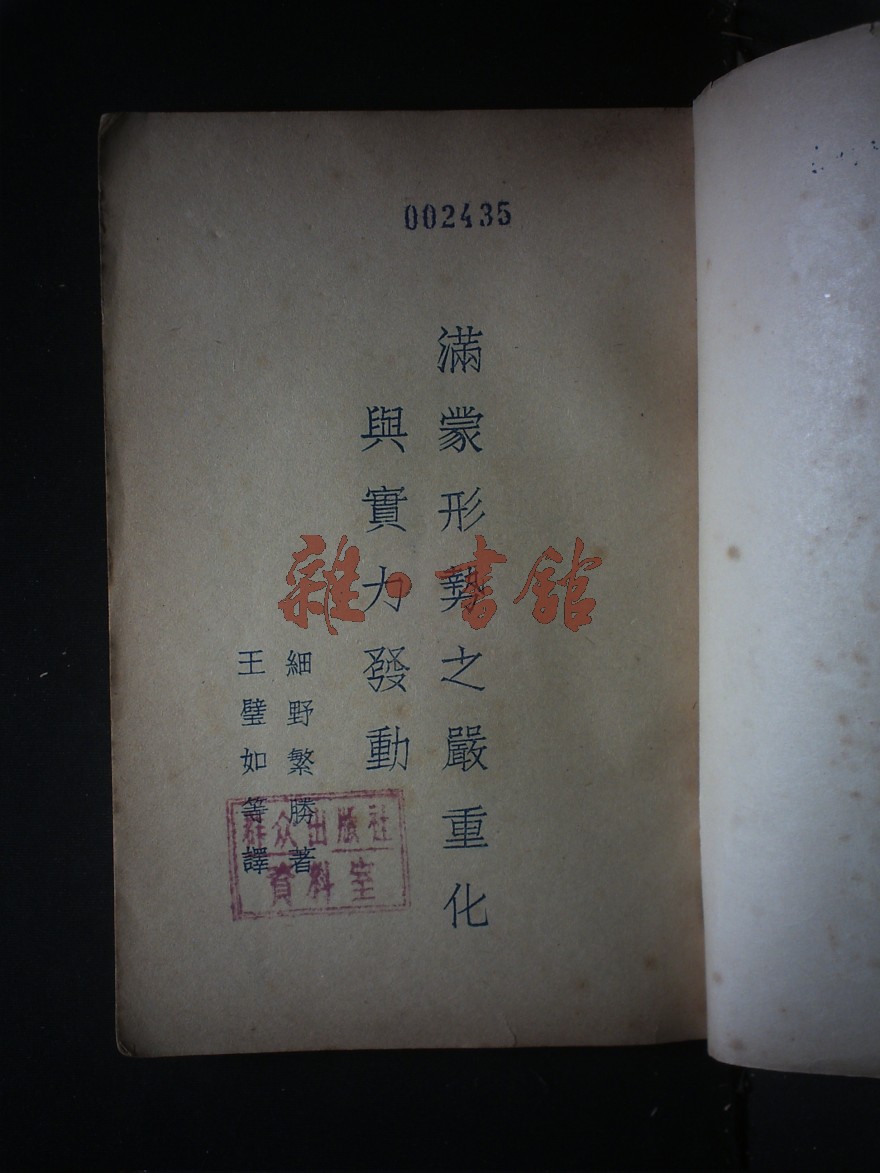 002435
滿蒙形勢之嚴重化
與實力發動
細野繁勝著
王璧如等譯
群众出版社
資料室
雜·書館